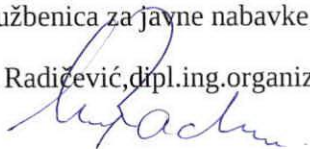 užbenica za javne nabavke
Radičević,dipl.ing.organiz